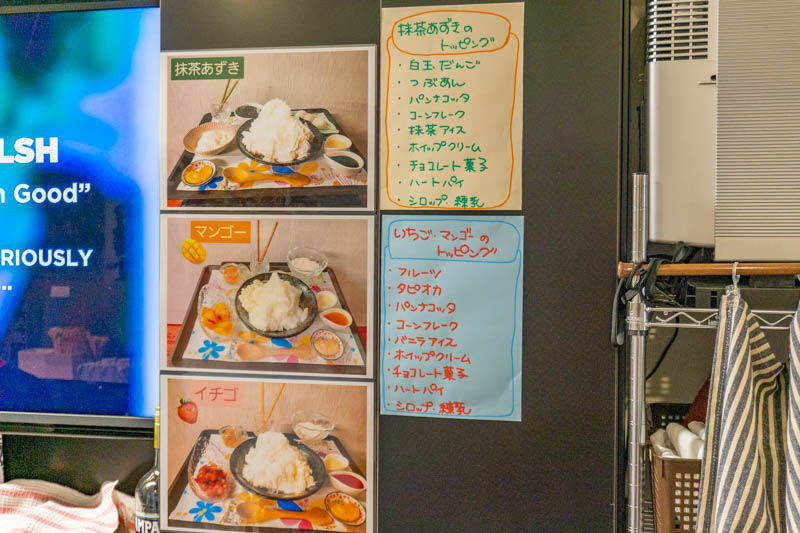 LSH
Good”
RIOUSLY
...
抹茶あずき
マンゴー
イチゴ
抹茶あずきの
トッピング
・白玉だんご
・つぶあん
・パンナコッタ
・コーンフレーク
・抹茶アイス
・ホイップクリーム
・チョコレート菓子
・ハートパイ
・シロップ・練乳
いちご・マンゴーの
トッピング
・フルーツ
・タピオカ
・パンナコッタ
・コーンフレーク
・バニラアイス
・ホイップクリーム
・チョコレート菓子
・ハートパイ
・シロップ・練乳
MPA